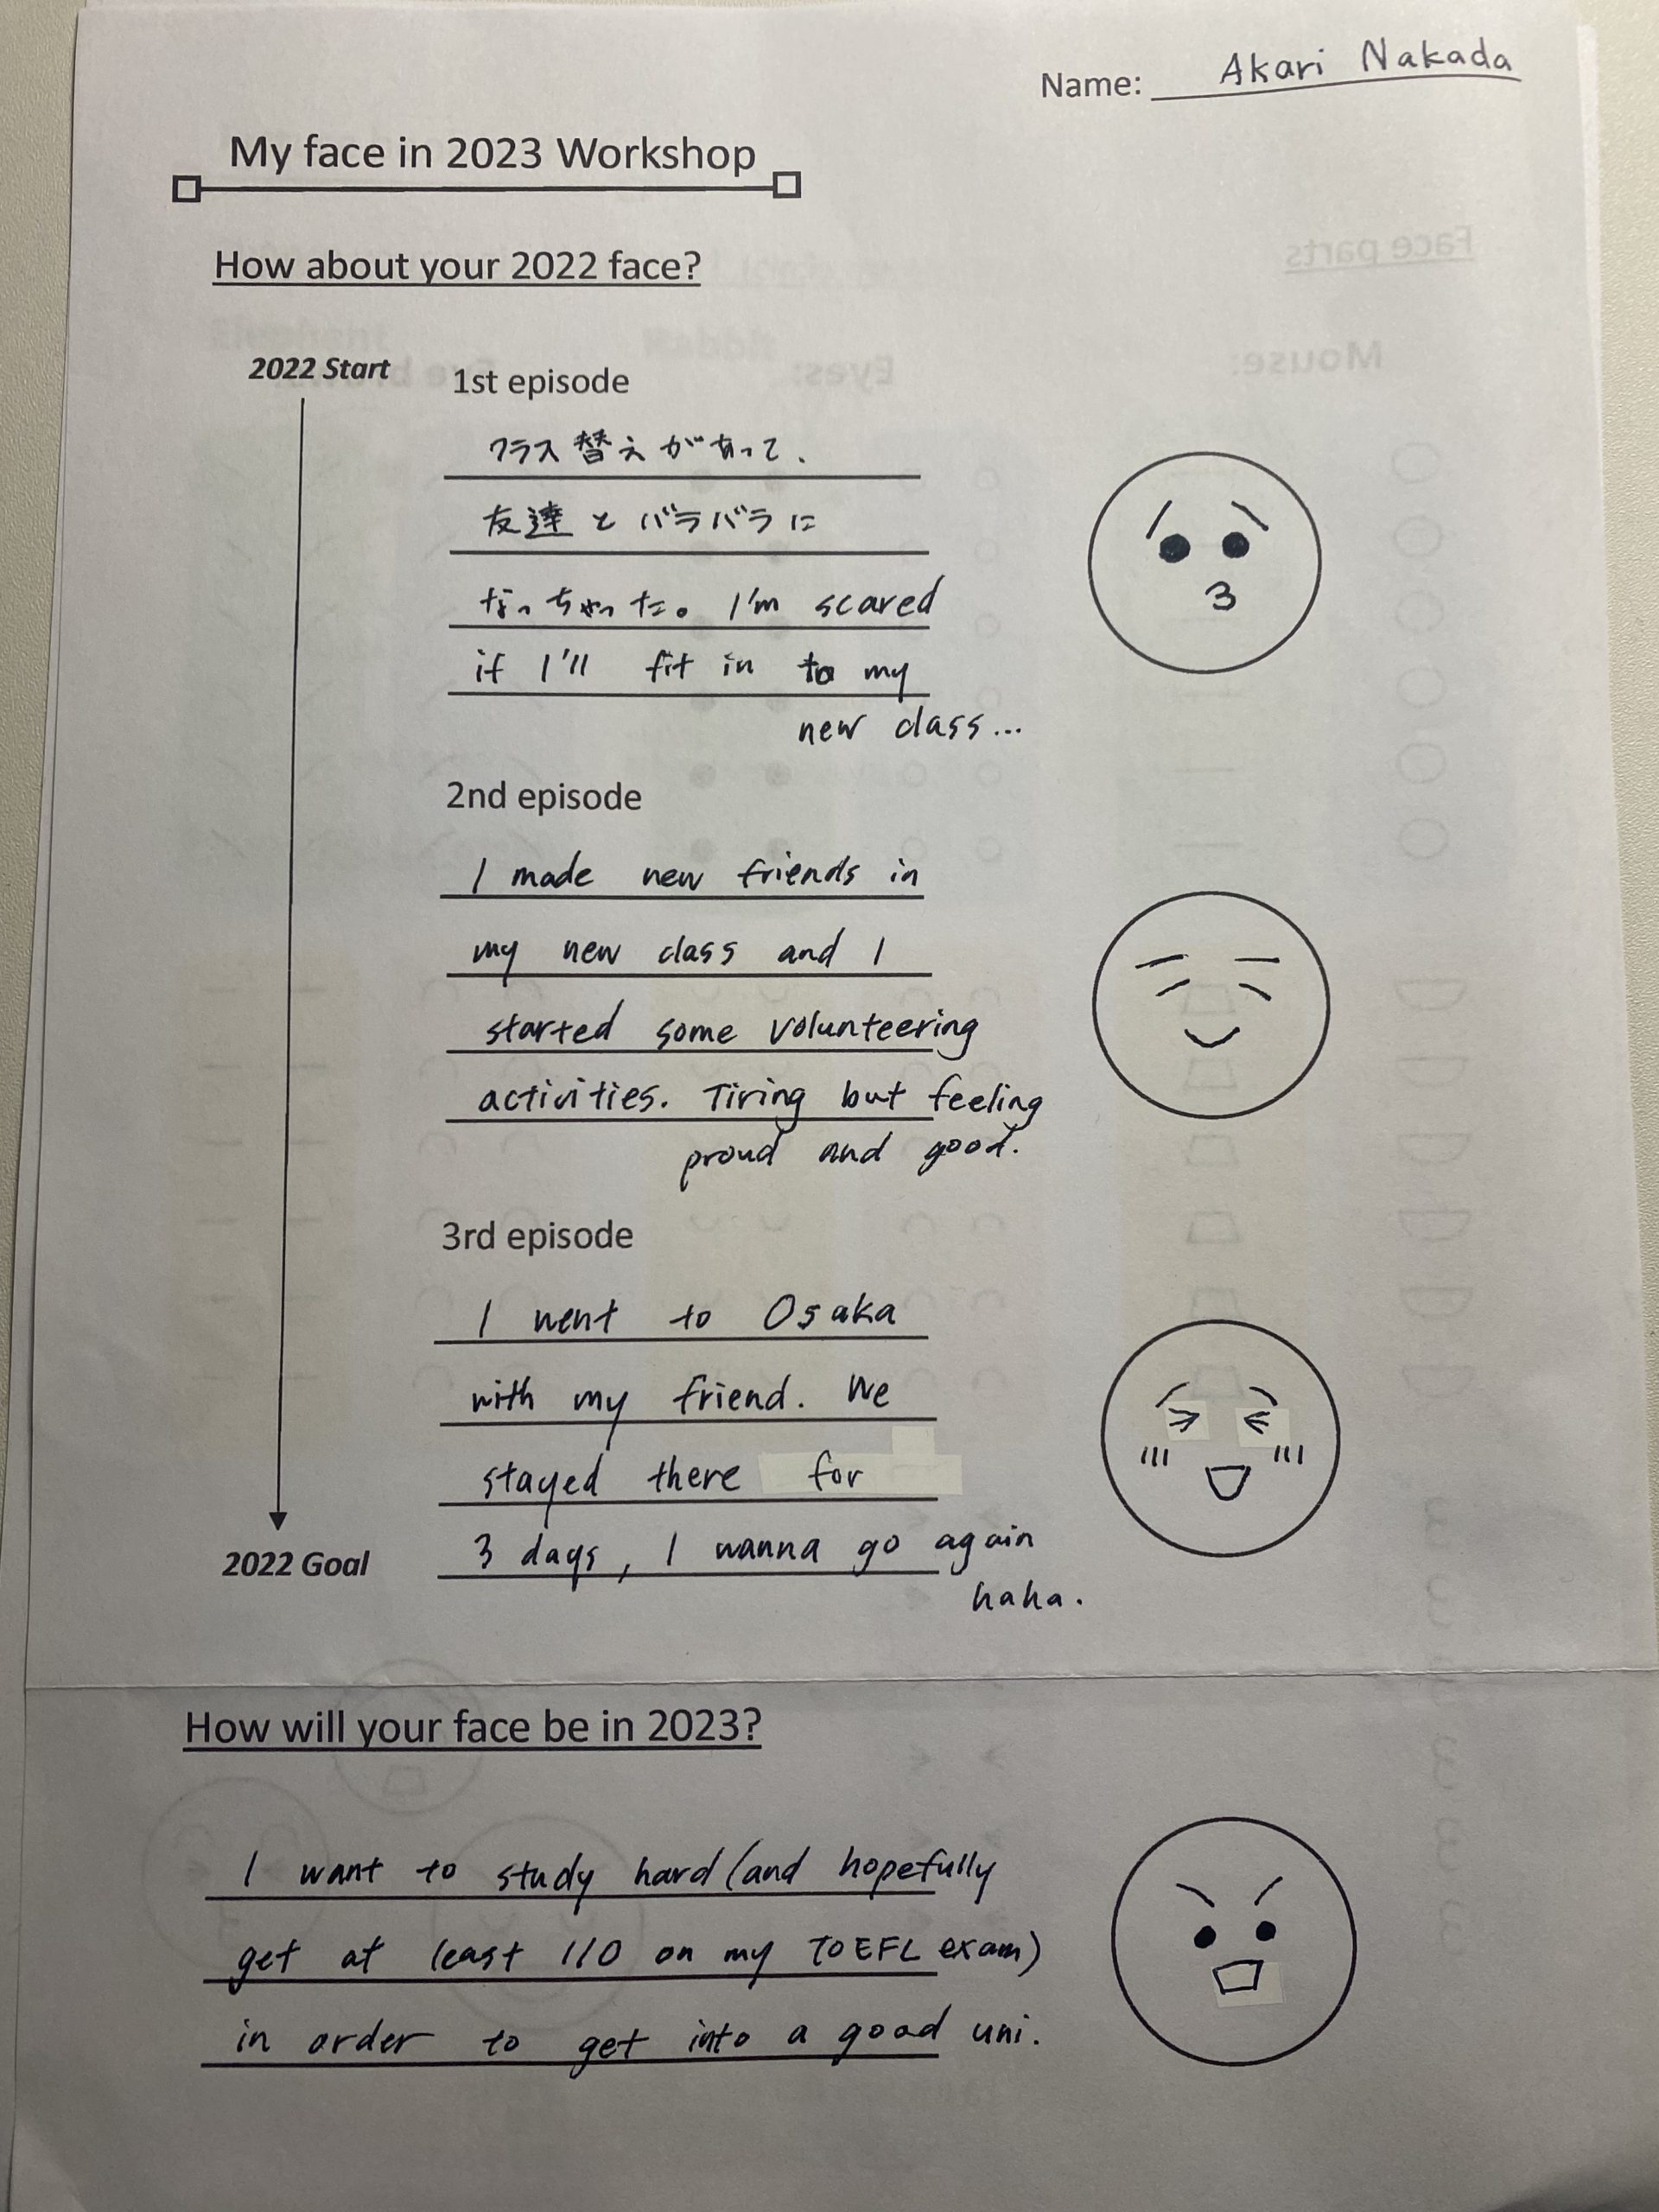 Name: Akari Nakada
My face in 2023 Workshop
How about your 2022 face?
Face parts
Mouse:
Eyes:
2022 Start
1st episode
クラス替えがあって、
友達とバラバラに
なっちゃった。I'm scared
if I'll fit in to my
new class...
2nd episode
I made new friends in
my new class and I
started some volunteering
activities. Tiring but feeling
proud and good.
3rd episode
I went to Osaka
with my friend. We
stayed there for
3 days, I wanna go again
haha.
2022 Goal
How will your face be in 2023?
I want to study hard (and hopefully
get at least 110 on my TOEFL exam)
in order to get into a good uni.